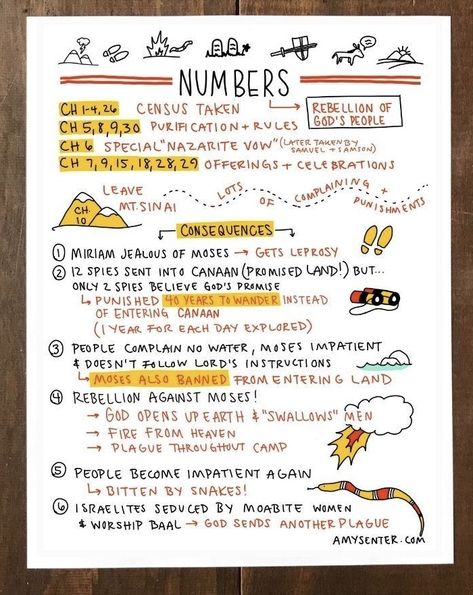 NUMBERS
CH 1-4, 26 CENSUS TAKEN → REBELLION OF GOD'S PEOPLE
CH 5,8,9,30 PURIFICATION + RULES
CH 6 SPECIAL "NAZARITE VOW" (LATER TAKEN BY SAMUEL + SAMSON)
CH 7, 9, 15, 18, 28, 29 OFFERINGS + CELEBRATIONS
LEAVE MT. SINAI
LOTS OF COMPLAINING + PUNISHMENTS
CH. 10
CONSEQUENCES
① MIRIAM JEALOUS OF MOSES → GETS LEPROSY
② 12 SPIES SENT INTO CANAAN (PROMISED LAND!) BUT...
ONLY 2 SPIES BELIEVE GOD'S PROMISE
↳ PUNISHED 40 YEARS TO WANDER INSTEAD
OF ENTERING CANAAN
(1 YEAR FOR EACH DAY EXPLORED)
③ PEOPLE COMPLAIN NO WATER, MOSES IMPATIENT
& DOESN'T FOLLOW LORD'S INSTRUCTIONS
↳ MOSES ALSO BANNED FROM ENTERING LAND
④ REBELLION AGAINST MOSES!
→ GOD OPENS UP EARTH & "SWALLOWS" MEN
→ FIRE FROM HEAVEN
→ PLAGUE THROUGHOUT CAMP
⑤ PEOPLE BECOME IMPATIENT AGAIN
↳ BITTEN BY SNAKES!
⑥ ISRAELITES SEDUCED BY MOABITE WOMEN
& WORSHIP BAAL → GOD SENDS ANOTHER PLAGUE
AMYSENTER.COM